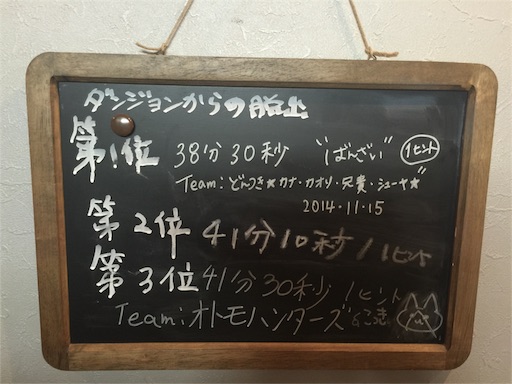 ダンジョンからの脱出
第1位 38分30秒 "ばんざい" 1ヒント
Team:どんつき★カナ・カオリ・兄貴・シューヤ★
2014・11・15
第2位 41分10秒 / 1ヒント
第3位 41分30秒 1ヒント
Team:オトモハンターズ